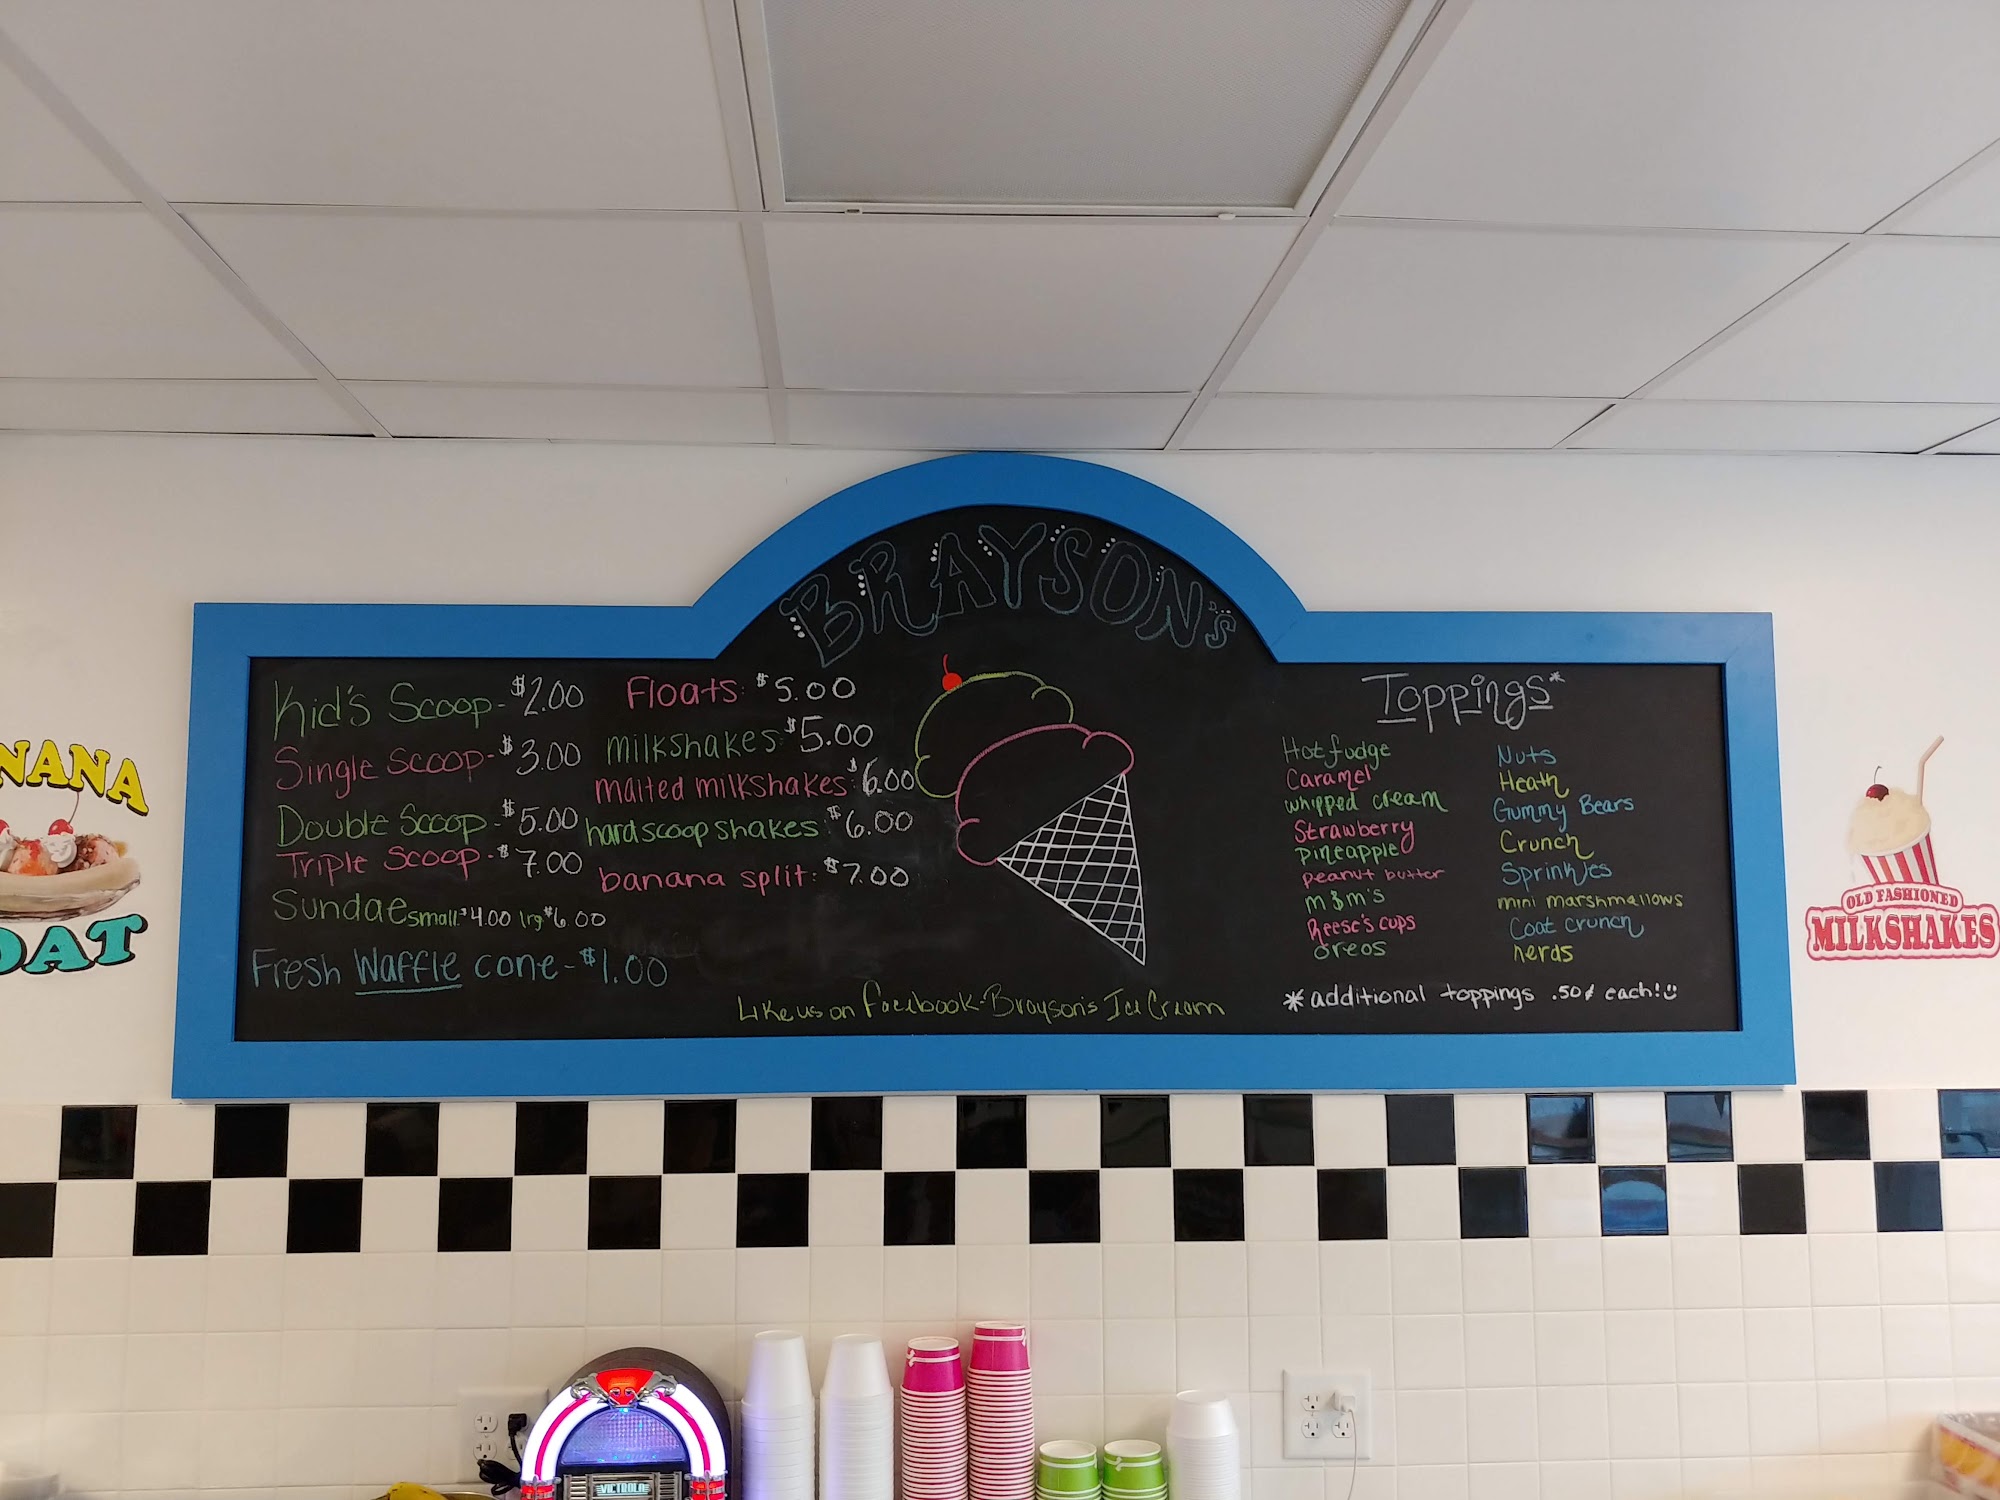 BRAYSON'S
Kid's Scoop - $2.00
Single Scoop - $3.00
Double Scoop - $5.00
Triple Scoop - $7.00
Sundae small: $4.00 lrg $6.00
Fresh Waffle cone - $1.00
Floats: $5.00
milkshakes: $5.00
malted milkshakes: $6.00
hard scoop shakes: $6.00
banana split: $7.00
Like us on Facebook - Brayson's Ice Cream
Toppings*
Hot fudge
Caramel
whipped cream
Strawberry
Pineapple
peanut butter
m&m's
Reese's cups
oreos
Nuts
Heath
Gummy Bears
Crunch
Sprinkles
mini marshmallows
Coat crunch
nerds
*additional toppings .50¢ each!
NANA
OAT
OLD FASHIONED
MILKSHAKES
VICTROLA